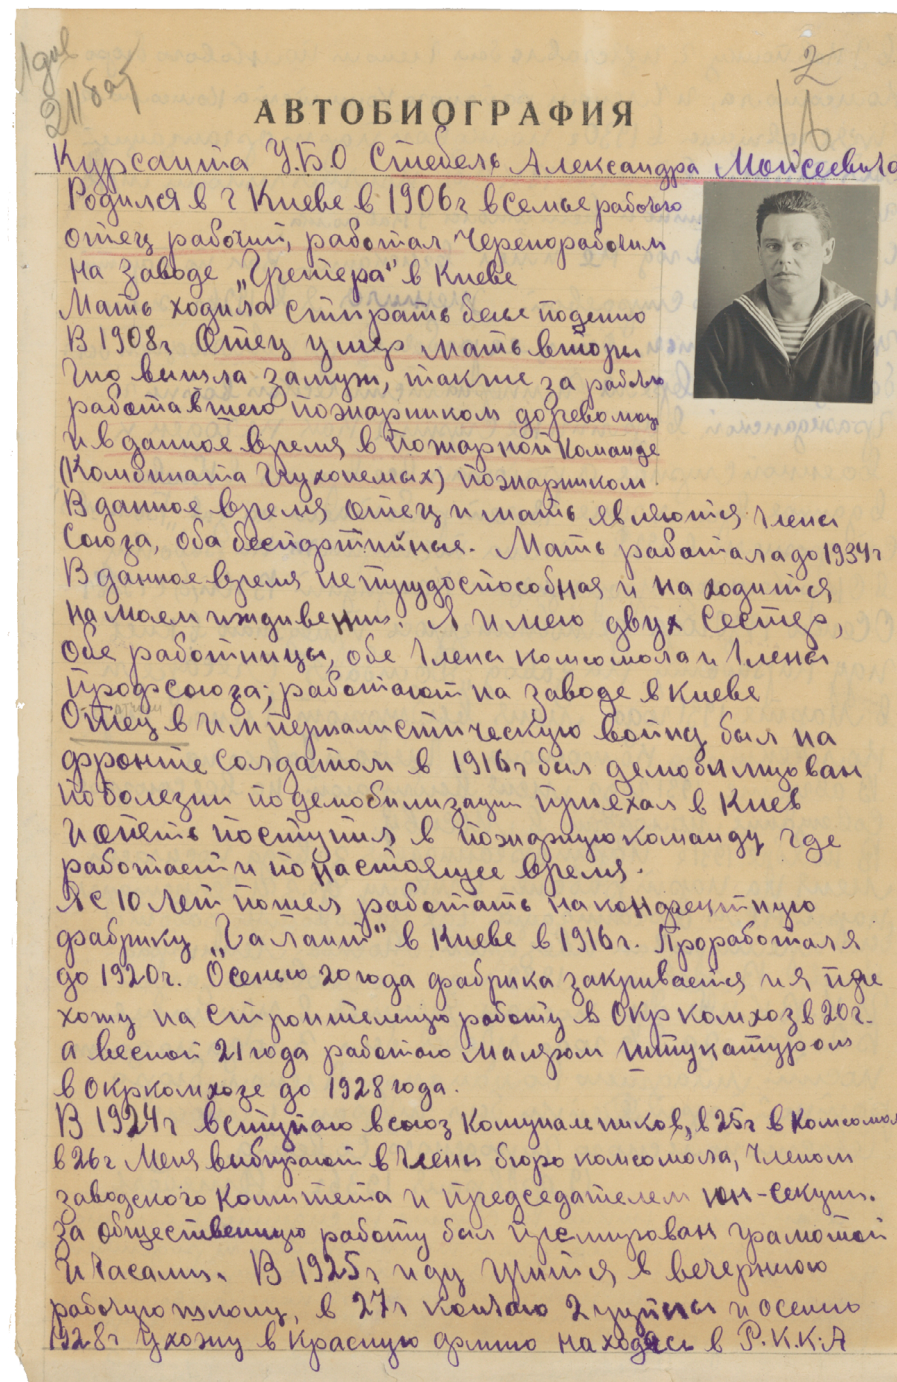 2
АВТОБИОГРАФИЯ
Курсанта УБО Стебель Александра Моисеевича
Родился в г Киеве в 1906г в семье рабочего
отец рабочий, работал Чернорабочим
на заводе „Гретера" в Киеве
Мать ходила стирать белье поденно
В 1908г Отец умер мать втори
чно вышла замуж, также за рабоч
работавшего пожарником до револ
и в данное время в Пожарной Команде
(Комбината Глухонемых) пожарником
В данное время отец и мать являются члены
Союза, оба беспартийные. Мать работала до 1934г
В данное время нетрудоспособная и находится
на моем иждивении. Я имею двух сестер,
Обе работницы, обе члены комсомола и члены
профсоюза, работают на заводе в Киеве
отчим
Отец в империалистическую войну был на
фронте солдатом в 1916г был демобилизован
по болезни по демобилизации приехал в Киев
и опять поступил в пожарную команду где
работает и по настоящее время.
Я с 10 лет пошел работать на конфектную
фабрику „Галант" в Киеве в 1916г. Проработал я
до 1920г. Осенью 20 года фабрика закривается и я пере
хожу на строительную работу в Окркомхоз в 20г.
а весной 21 года работаю маляром штукатуром
в Окркомхозе до 1928 года.
В 1924г вступаю в союз Комунальников, в 25г в Комсомол
в 26г меня выбирают в члены бюро комсомола, членом
заводского Комитета и председателем юн-секции.
За общественную работу был премирован грамотой
и часами. В 1925г иду учится в вечернюю
рабочую школу, в 27г кончаю 2 групы и осенью
1928г ухожу в Красную армию находясь в Р.К.К.А